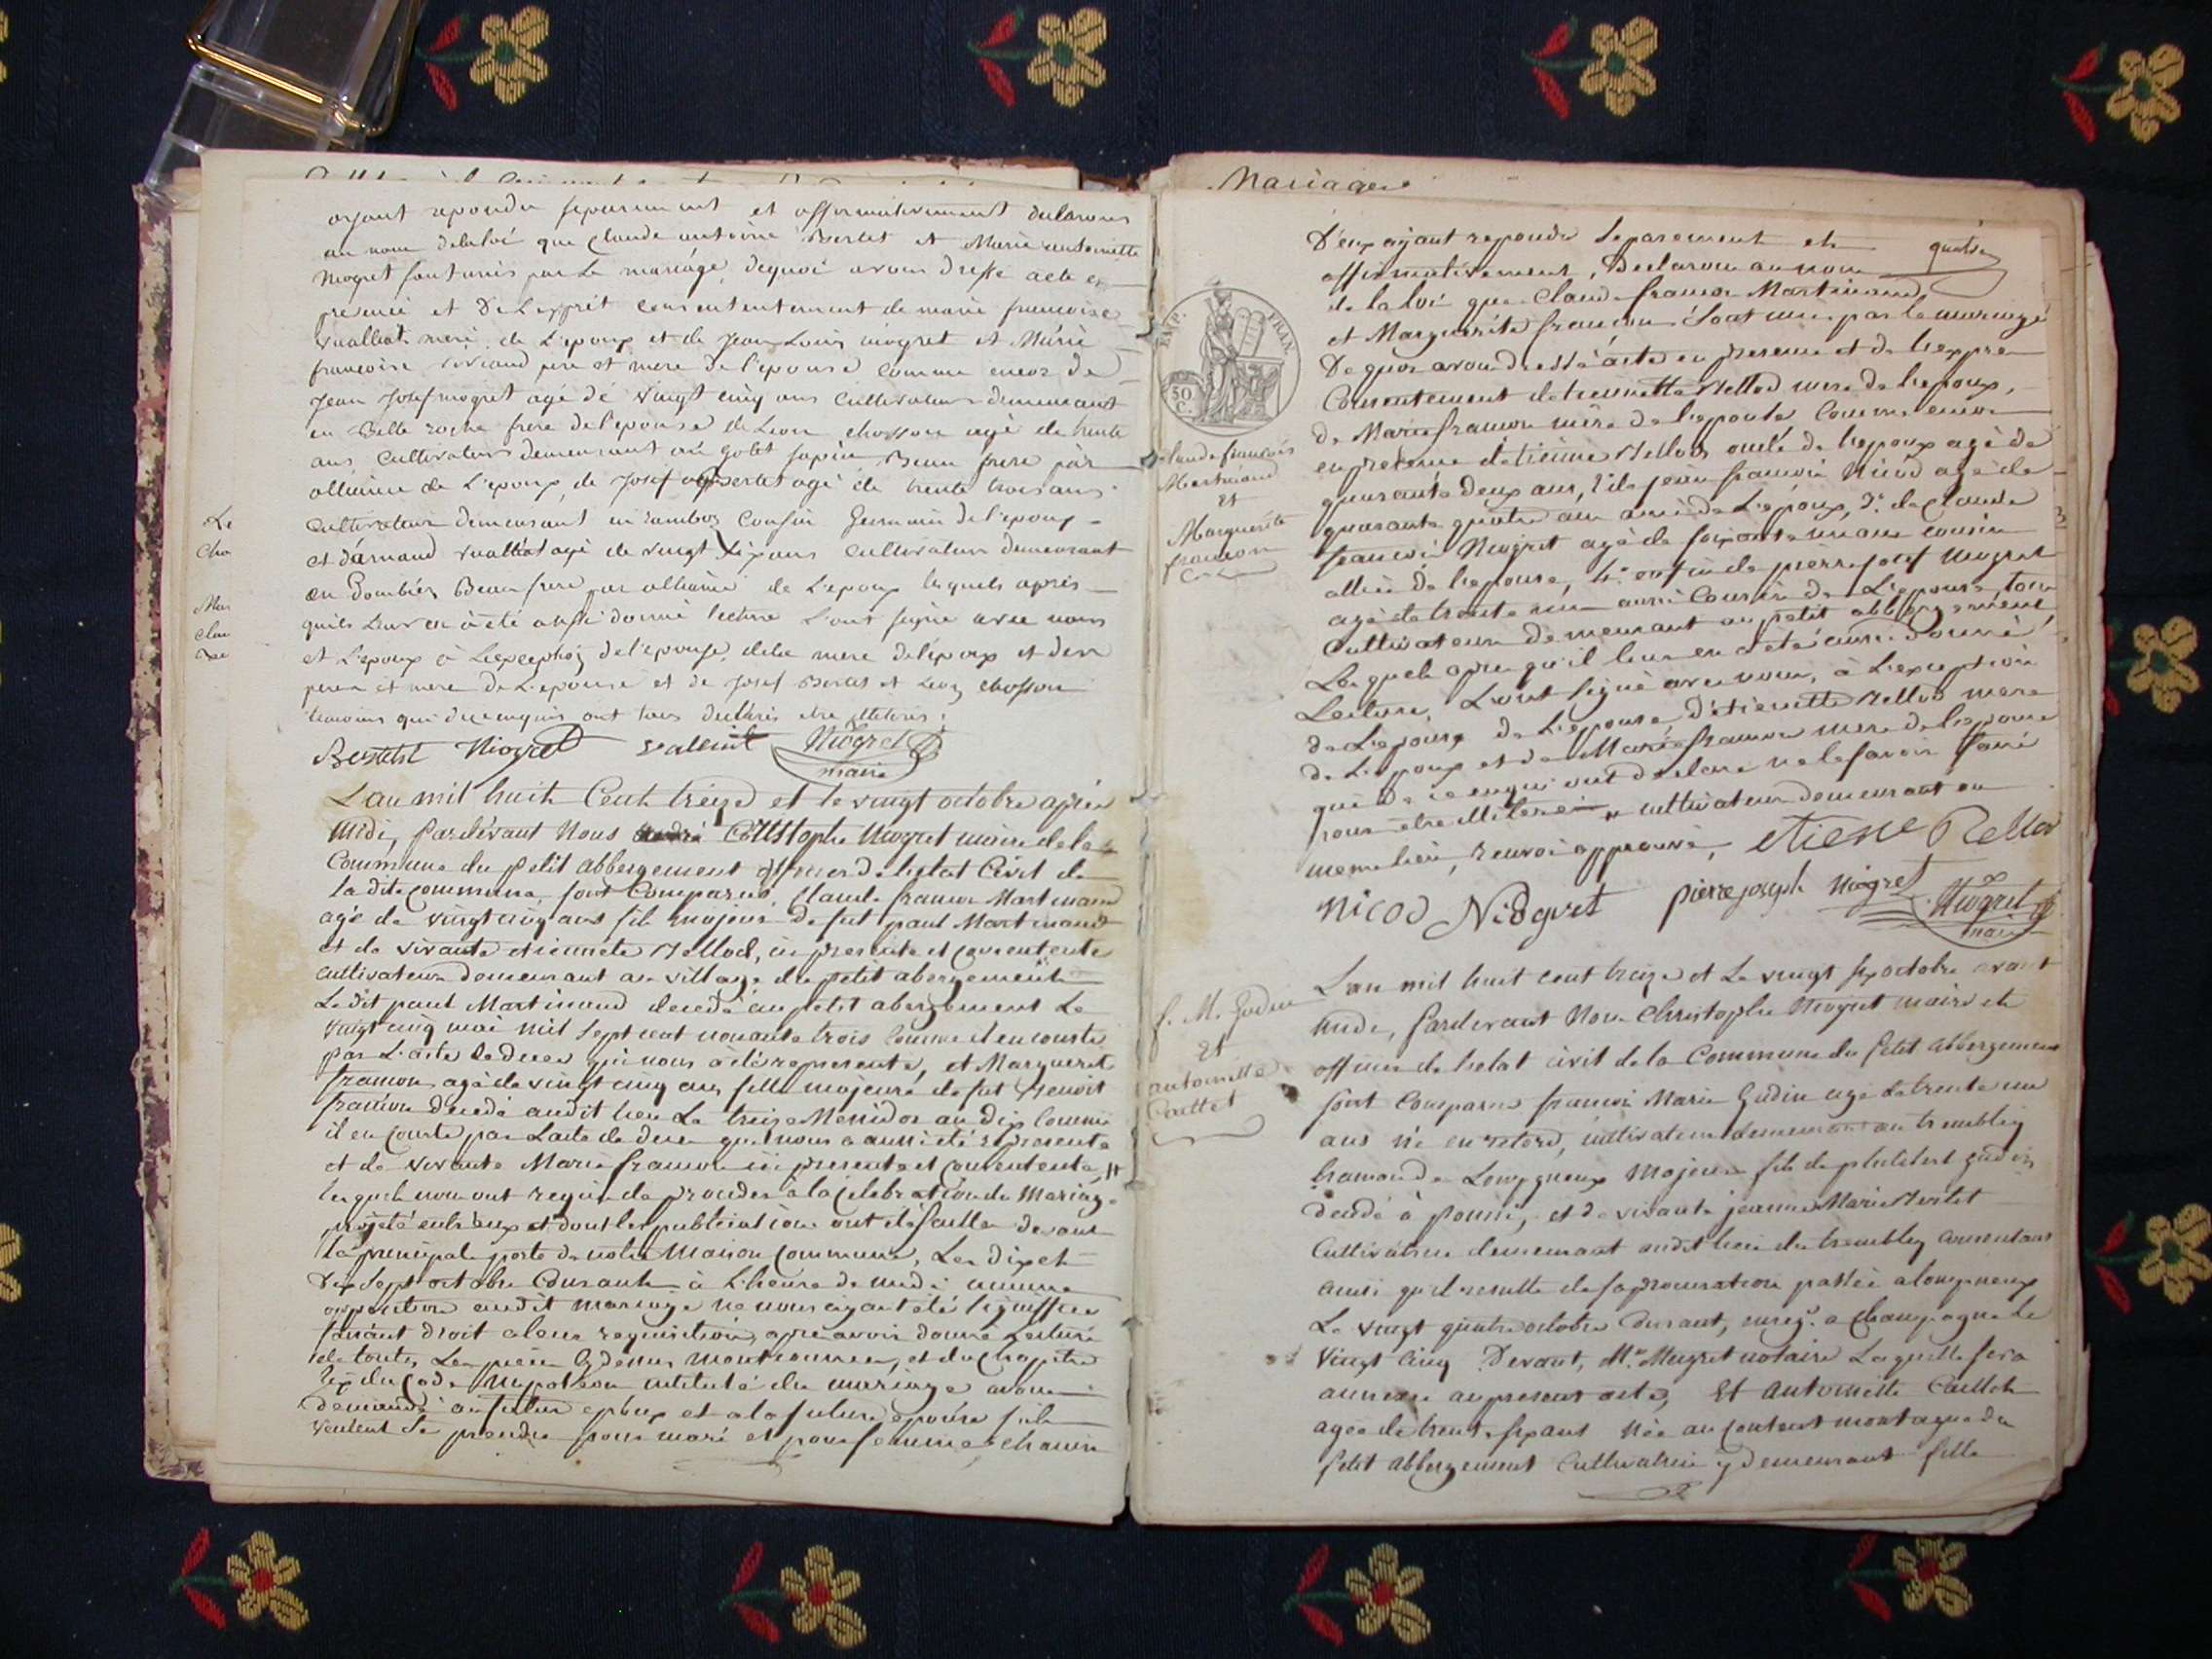 ayant repondu separement et affirmativement declarons
au nom de la loi que Claude antoine Bertet et Marie antoinette
Niogret sont unis par le mariage, de quoi avons dressé acte en
presence et De L'exprét consententement de marie francoise
mere de L'epoux et de Jean Louis niogret et Marie
francoise pere et mere de l'epouse comme encor de
Jean Josef niogret agé dé vingt cinq ans cultivateur demeurant
en Belle roche frere de l'epouse de Leon chosson agé de trente
ans cultivateur demeurant au golet sapin Beau frere par
alliance de L'epoux, de Josef Bertet agé de trente trois ans
cultivateur demeurant en Cousin Germain de l'epoux
et d'arnaud agé de vingt six ans cultivateur demeurant
en Beau frere par alliance de L'epoux lesquels après
qu'ils Leur en à été aussi donné lecture L'ont signé avec nous
et L'epoux à L'exception de l'epouse, de la mere de l'epoux et des
peres et mere de L'epouse et de Josef Bertet et Leon chosson
temoins qui de ce enquis ont tous declarés etre illiterés.
Bertet Niogret Niogret
maire
Le
cho
Mar
clau
L'an mil huit Cent treize et le vingt octobre après
Midi, pardevant Nous Christophe Niogret maire de la
Commune du petit abbergement officier de l'etat Civil de
la dite commune, sont Comparus, Claude francois Martinand
agé de vingt cinq ans fils majeur de feu paul Martinand
et de vivante etiennete Mellod, ici presente et consentente
cultivateur demeurant au village du petit abergement
Le dit paul Martinand decedé au petit abergement Le
vingt cinq mai mil sept cent nonante trois comme il en conste
par L'acte de deces qui nous à été representé, et Marguerite
francon agée de vingt cinq ans fille majeure de feu Benoit
francon decedé audit lieu Le treize Messidor an dix comme
il en conste par L'acte de deces qui nous a aussi été representé
et de vivante Marie francon ici presente et consentente #
lesquels nous ont requis de proceder à la celebration du Mariage
projeté entr'eux et dont les publications ont été faittes devant
la principale porte de notre Maison Commune, Les dix et
dix sept octobre Courant à L'heure de midi aucune
opposition audit mariage ne nous ayant été signiffiée
faisant droit a leur requisition, apres avoir donné Lecture
de toutes Les pieces cy dessus mentionnées, et du Chapitre
six du Code Napoleon intitulé du mariage avons
demandé au futur epoux et a la future epouse s'ils
veulent se prendre pour mari et pour femme, chacun
Mariages
EMP. FRAN.
50
C.
Claude francois
Martinand
Et
Marguerite
francon
D'eux ayant repondu separement et
affirmativement, Declarons au nom
de la loi que Claude francois Martinand
et Marguerite francon sont unis par le mariage
De quoi avons dressé acte en presence et de l'expres
Consentement de etiennette Mellod mere de l'epoux,
de Marie francon mère de l'epouse, Comme encor
en presence d'etienne Mellod oncle de l'epoux agé de
quarante deux ans, 2° de jean francois Nicod agé de
quarante quatre ans ami de L'epoux, 3° de Claude
francois Niogret agé de soixante un ans cousin
allié de l'epouse, 4° enfin de pierre josef niogret
agé de trente un aussi Cousin de L'epouse, tous
cultivateurs demeurant au petit abbergement,
Lesquels apres qu'il leur en a été aussi donné
Lecture, L'ont signé avec nous, à L'exception
de L'epoux, de L'epouse, d'etiennette Mellod mere
de L'epoux et de Marie francon mere de l'epouse
qui de ce enquis ont declaré ne le savoir faire
pour etre illiterés # cultivateur demeurant au
meme lieu, renvoi approuvé, etiene Mellod
nicod Niogret pierre joseph niogret Niogret
maire
f. M. Gudin
Et
antoinette
Caillet
L'an mil huit cent treize et Le vingt six octobre avant
Midi, pardevant Nous Christophe Niogret maire et
officier de l'etat civil de la Commune du petit abbergement
sont Comparus francois Marie Gudin agé de trente un
ans né en retord, cultivateur demeurant au trembley
hameau de Lompgneux Majeur fils de philibert gudin
decedé à ponné, et de vivante jeanne Marie Bertet
Cultivatrice demeurant audit lieu du trembley consentant
ainsi qu'il resulte de sa procuration passée a Lompneux
Le vingt quatre octobre Courant, enreg.é a Champagne le
vingt cinq Devant, M.e Mugret notaire Laquelle sera
annexée au present acte, Et antoinette Caillet
agée de trente six ans née au montagne du
petit abbergement Cultivatrice y demeurant fille